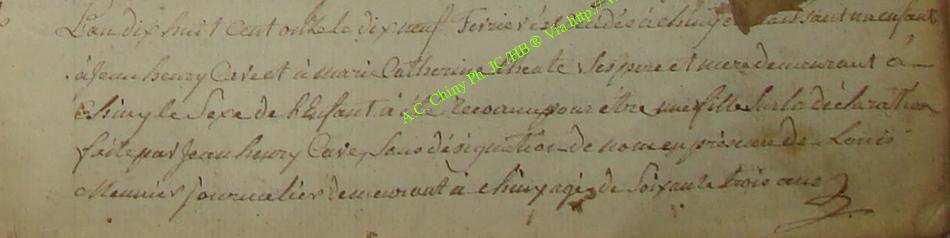 L'an dix huit cent onze le dix neuf Fevrier est decedés à chiny un enfant
à Jean henry Cave et à marie Catherine ses pere et mere demeurant à
chiny le Sexe de l'Enfant à été Reconnu pour être une fille sur la déclaration
faite par Jean henry Cave, sans désignation de nom en présence de Louis
Meunier journalier demeurant à chiny agé de Soixante trois ans
A.C. Chiny Ph. JC/HB® Via http://